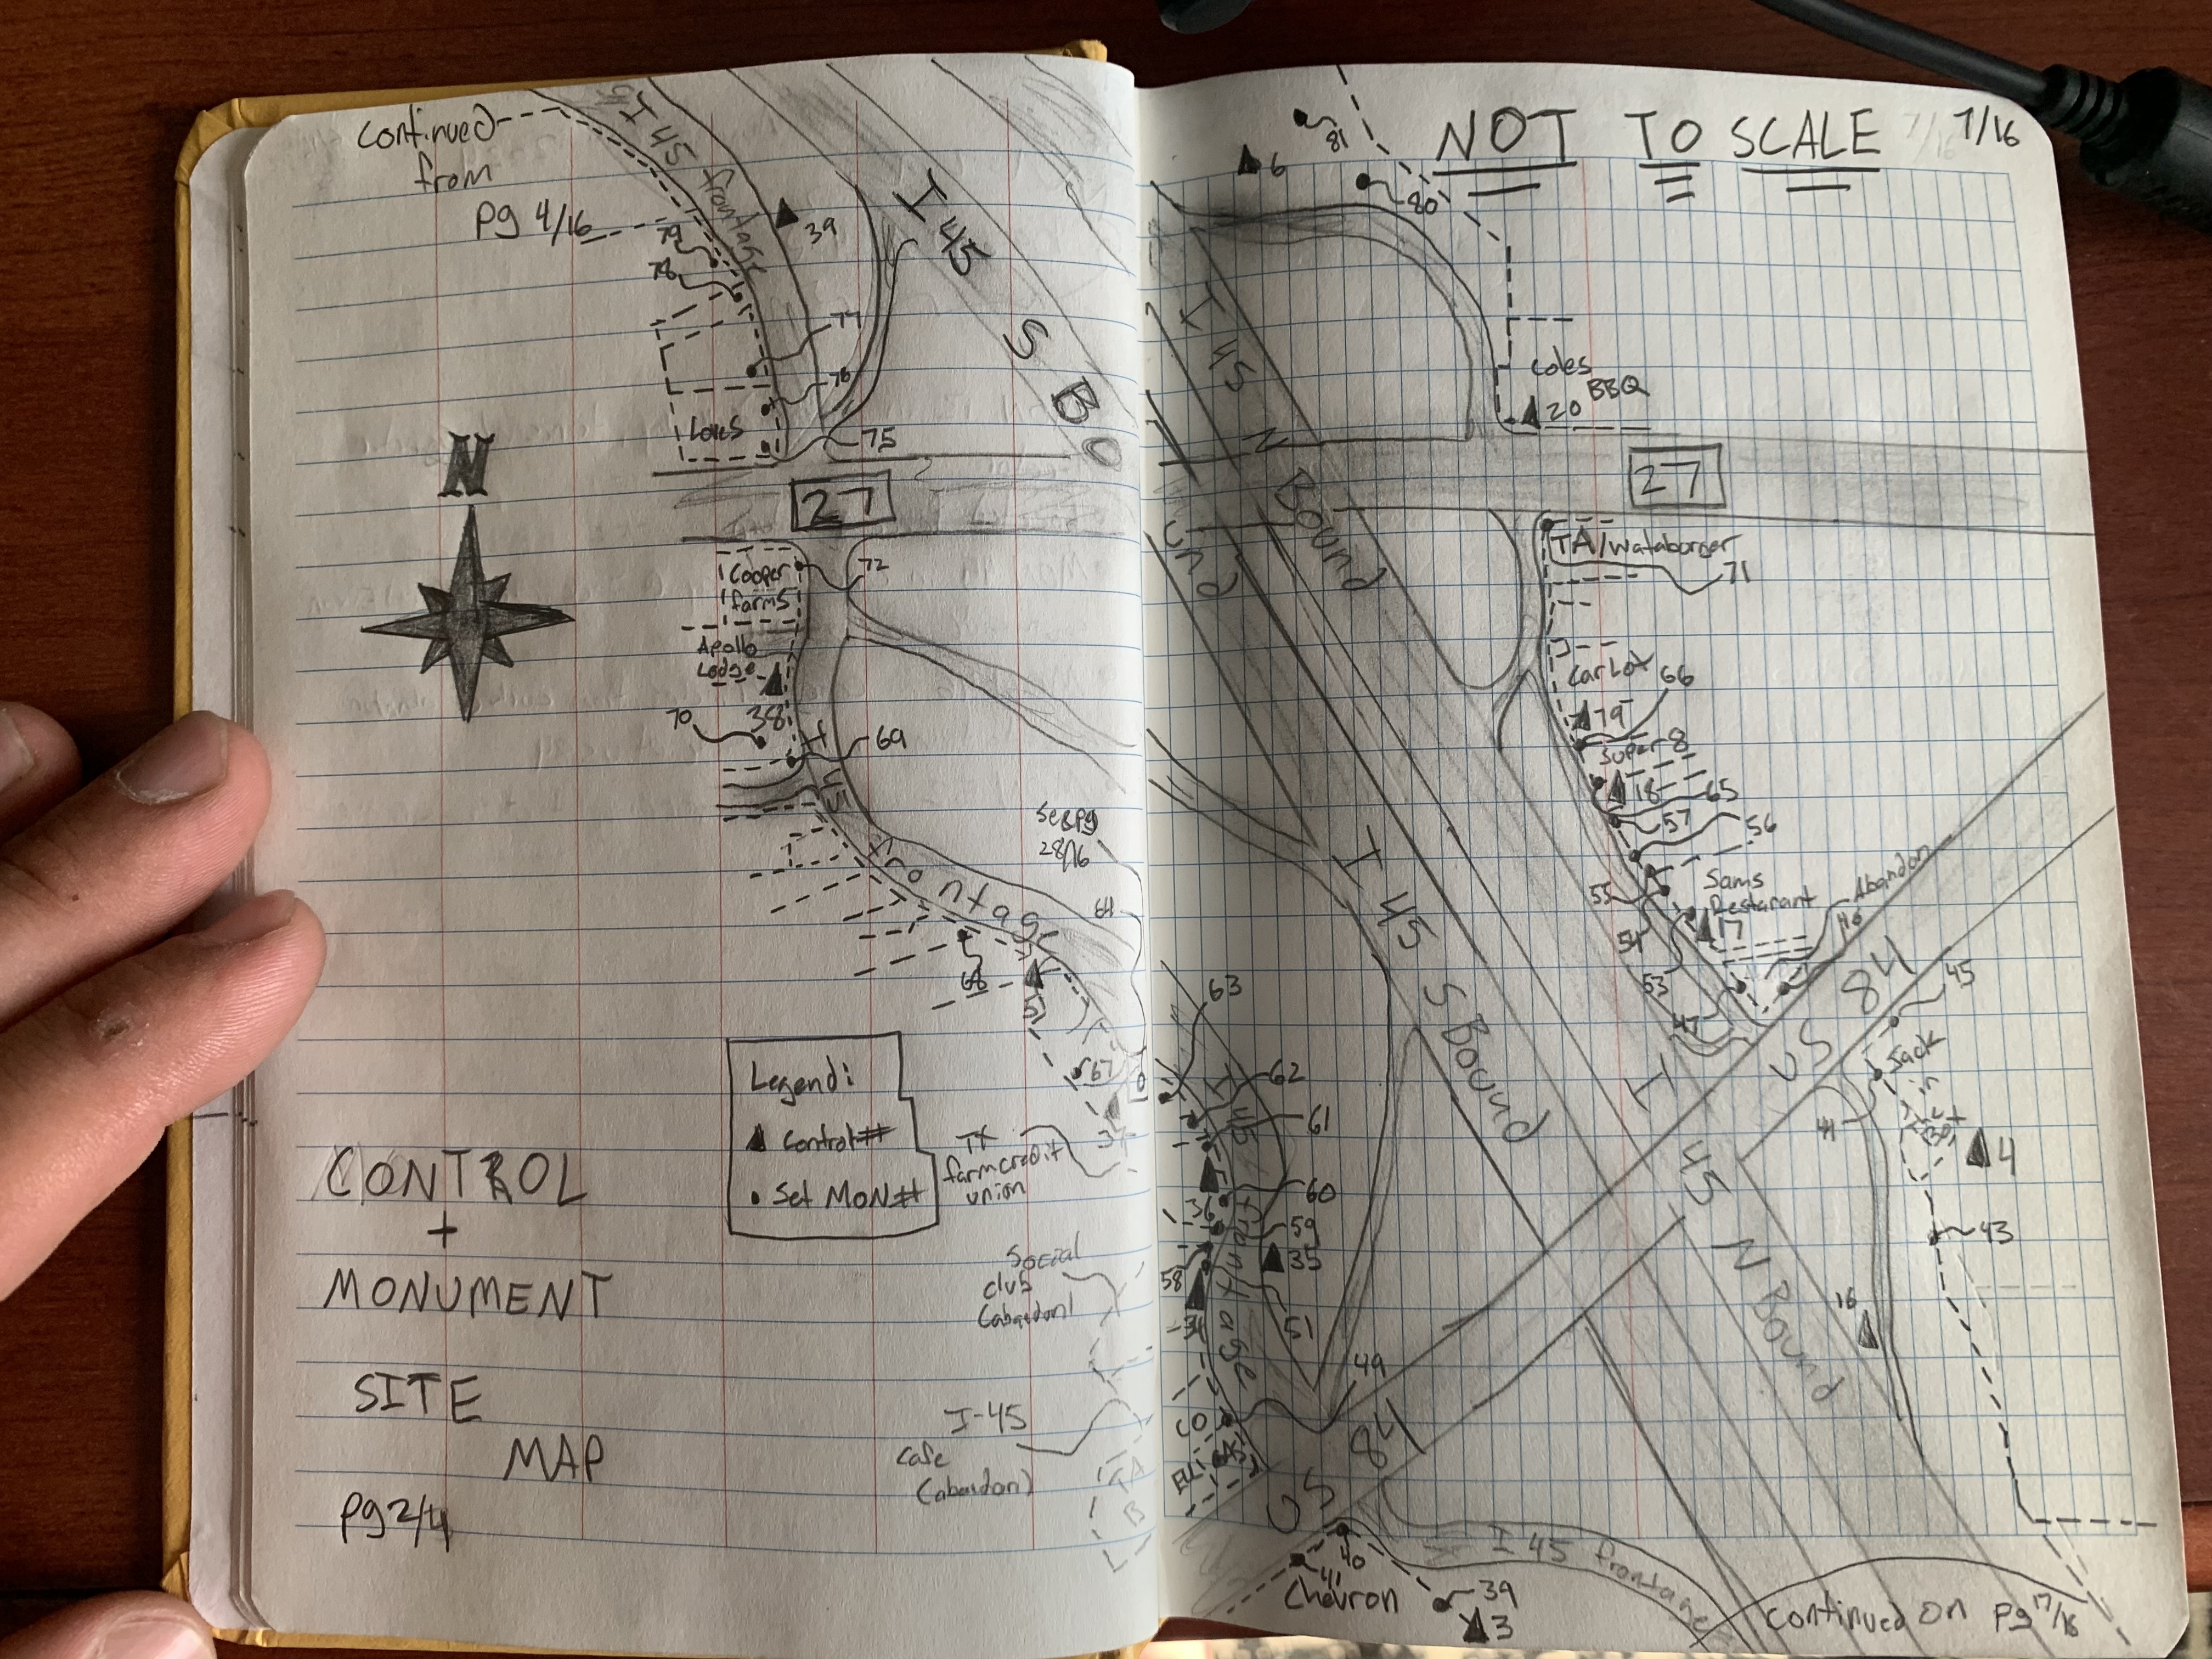 Continued
from
pg 4/16
I 45 frontage
39
I 45 S BO
79
78
77
76
Loves
75
N
27
Cooper
farms
72
Apollo
Lodge
38
70
69
frontage
See pg
28/16
64
68
51
67
37
Legend:
Control#
Set MON#
TX
farmcredit
union
Social
club
(abandon)
I-45
Cafe
(abandon)
CONTROL
+
MONUMENT
SITE
MAP
pg 2/4
NOT TO SCALE
7/16
81
6
80
I 45 N Bound
Coles
BBQ
20
27
und
TA/Wataburger
71
Car Lot
66
19
Super 8
18
65
57
56
55
Sams
Restarant
17
54
53
47
Abandon
46
US 84
45
Jack
in
the
Box
44
4
43
16
I 45 S Bound
I 45 N Bound
63
62
61
60
36
59
35
58
34
51
49
I 45 frontage
CO
US 84
40
41
Chevron
39
3
I 45 frontage
Continued on pg 17/16